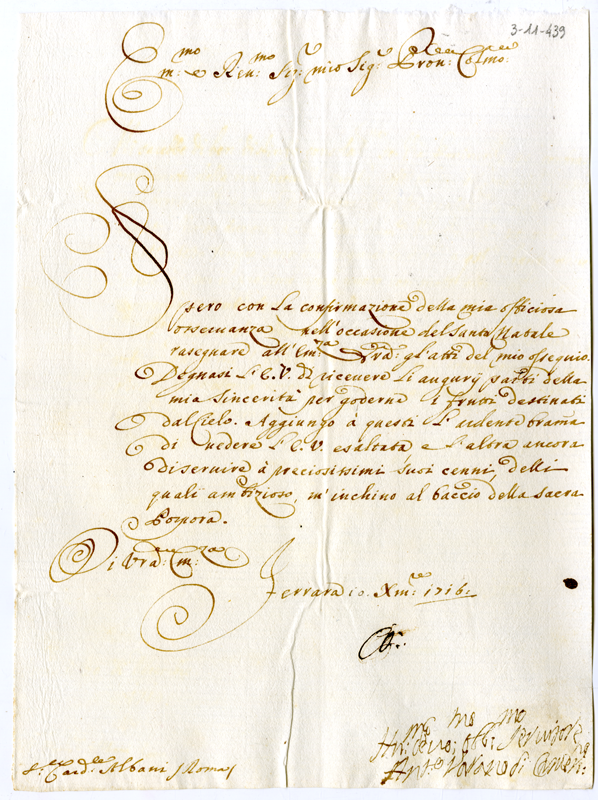 3-11-439
Em:mo e Ren:mo Sig:r mio Sig:r Pron: Col:mo
Spero con La confirmazione della mia officiosa
osseruanza nell'occasione del Santo Natale
rasegnare all'Em:za Vra: gl'atti del mio ossequio.
Degnasi L'E.V. di riceuere Li augurij parti della
mia sincerità per goderne i frutti destinati
dal Cielo. Aggiunzo à questi L'ardente brama
di uedere L'E.V. esaltata, e L'altra ancora
di seruire à preciosissimi suoi cenni, delli
quali ambizioso, m'inchino al baccio della sacra
Porpora.
Di Vra: Em:za
Ferrara 10. Xm:re 1716:
Hu:mo Deuo:mo Obb:mo Seruitore
Ant:o Varano di Camer:no
S:r Card:le Albani /Roma/